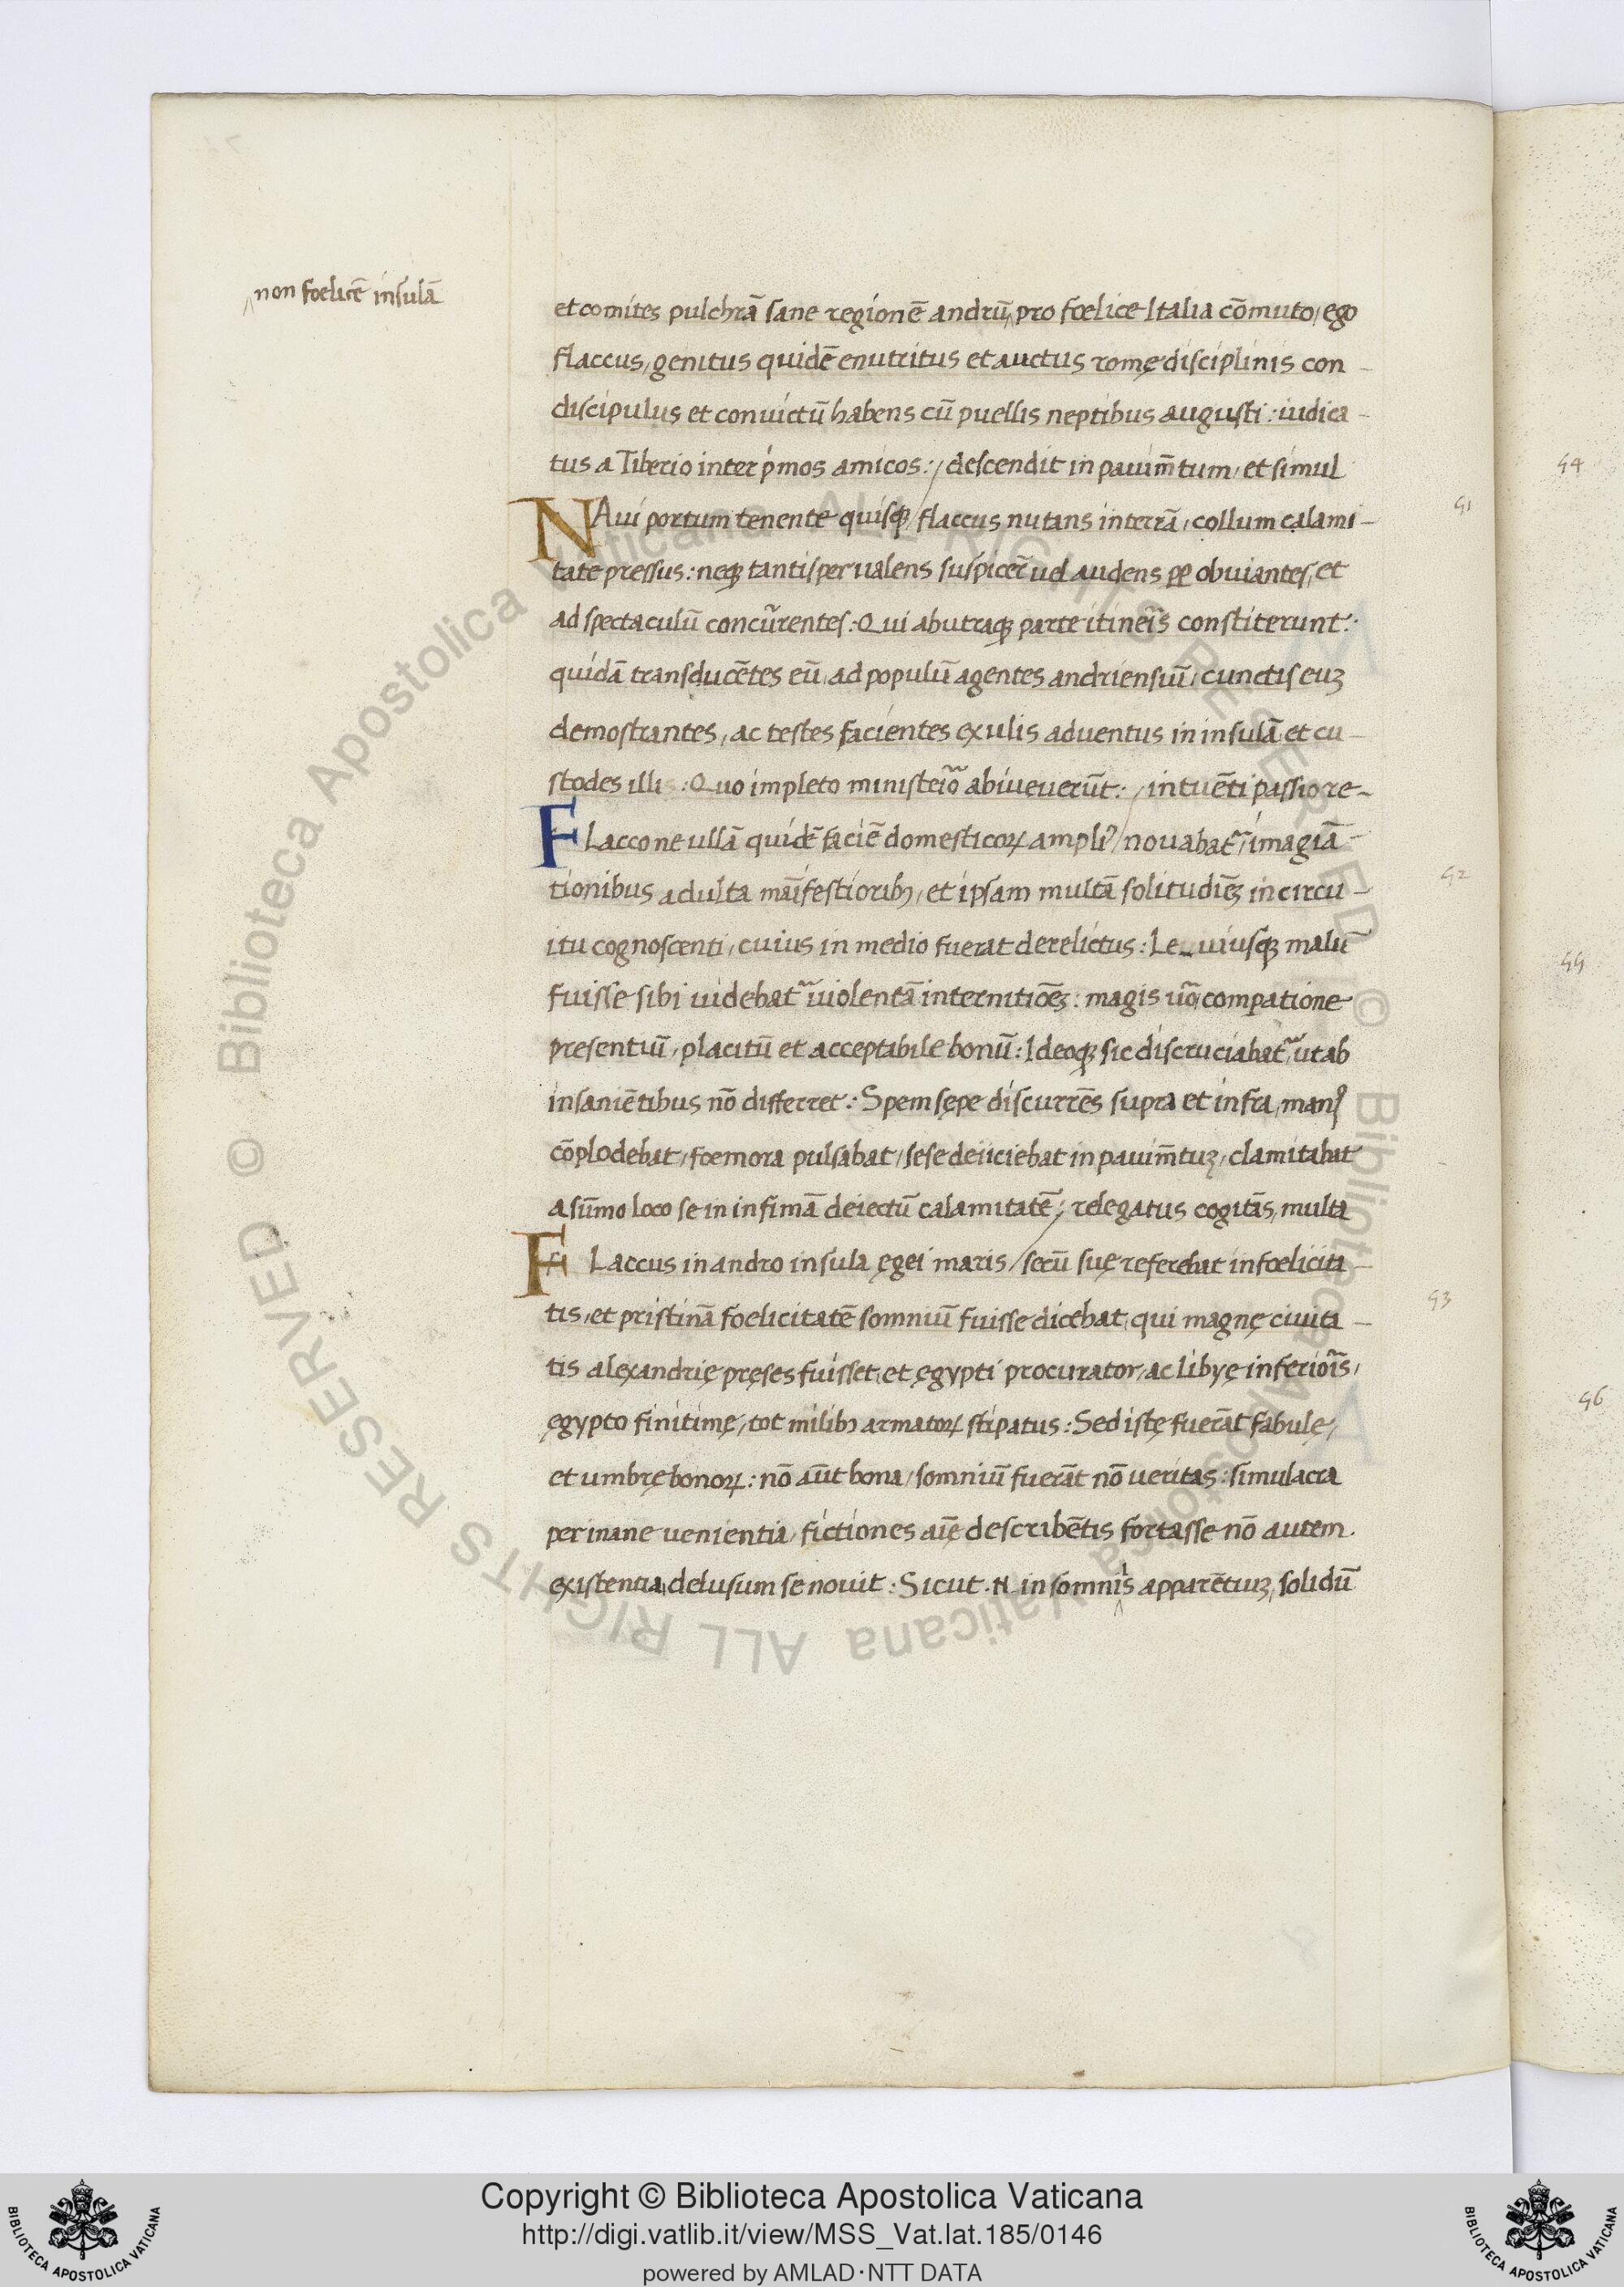 non foelicē insulā
et comites pulchrā sane regionē andrū, pro foelice Italia cōmuto, ego
flaccus, genitus quidē enutritus et auctus romę disciplinis con
discipulus et convictū habens cū puellis neptibus augusti: iudica
tus a Tiberio inter pͥmos amicos: / descendit in pauim̄tum, et simul
NAui portum tenente quisq̧ / flaccus nutans in terrā, collum calami
tate pressus: neq̧ tantisper ualens suspicer̄ uel audens ꝓp obuiantes, et
ad spectaculū concūrentes: Qui ab utraq̧ parte itineīs constiterunt:
quidā transducētes eū, ad populū agentes andriensiū, cunctis euꝫ
demostrantes, ac testes facientes exulis aduentus in insulā et cu
stodes illis: Quo impleto ministeīo abiueuerūt: / intuēti passio re
FLacco ne ullā quidē faciē domesticoꝝ ampliꝰ / nouabat᷑, imagiā
tionibus adulta māifestioribꝫ, et ipsam multā solitudiēꝫ in circu
itu cognoscenti, cuius in medio fuerat derelictus: Leuiusq̧ malū
fuisse sibi uidebat᷑ uiolentā internitiōeꝫ: magis uō comꝑatione
presentiū, placitū et acceptabile bonū: Ideoq̧ sic discruciabat᷑, ut ab
insaniētibus nō differret: Spem sępe discurrēs supra et infra, manꝰ
cōplodebat, foemora pulsabat, sese deiiciebat in pauim̄tuꝫ, clamitabat
a sūmo loco se in infimā deiectū calamitatē; / relegatus cogitās, multa
FLaccus in andro insula ęgei maris / secū suę referebat infoelicita
tis, et pristinā foelicitatē somniū fuisse dicebat, qui magnę ciuita
tis alexandrię pręses fuisset, et ęgypti procurator, ac libyę inferioīs,
ęgypto finitimę, tot milibꝫ armatoꝝ stipatus: Sed istę fuerāt fabulę,
et umbrę bonoꝝ: nō aūt bona, somniū fuerāt nō ueritas: simulacra
per inane uenientia, fictiones aīę describētis fortasse nō autem
existentia, delusum se nouit: Sicut .n. in somniis apparētiuꝫ, solidū
51
52
53
54
55
56
Copyright © Biblioteca Apostolica Vaticana
http://digi.vatlib.it/view/MSS_Vat.lat.185/0146
powered by AMLAD·NTT DATA